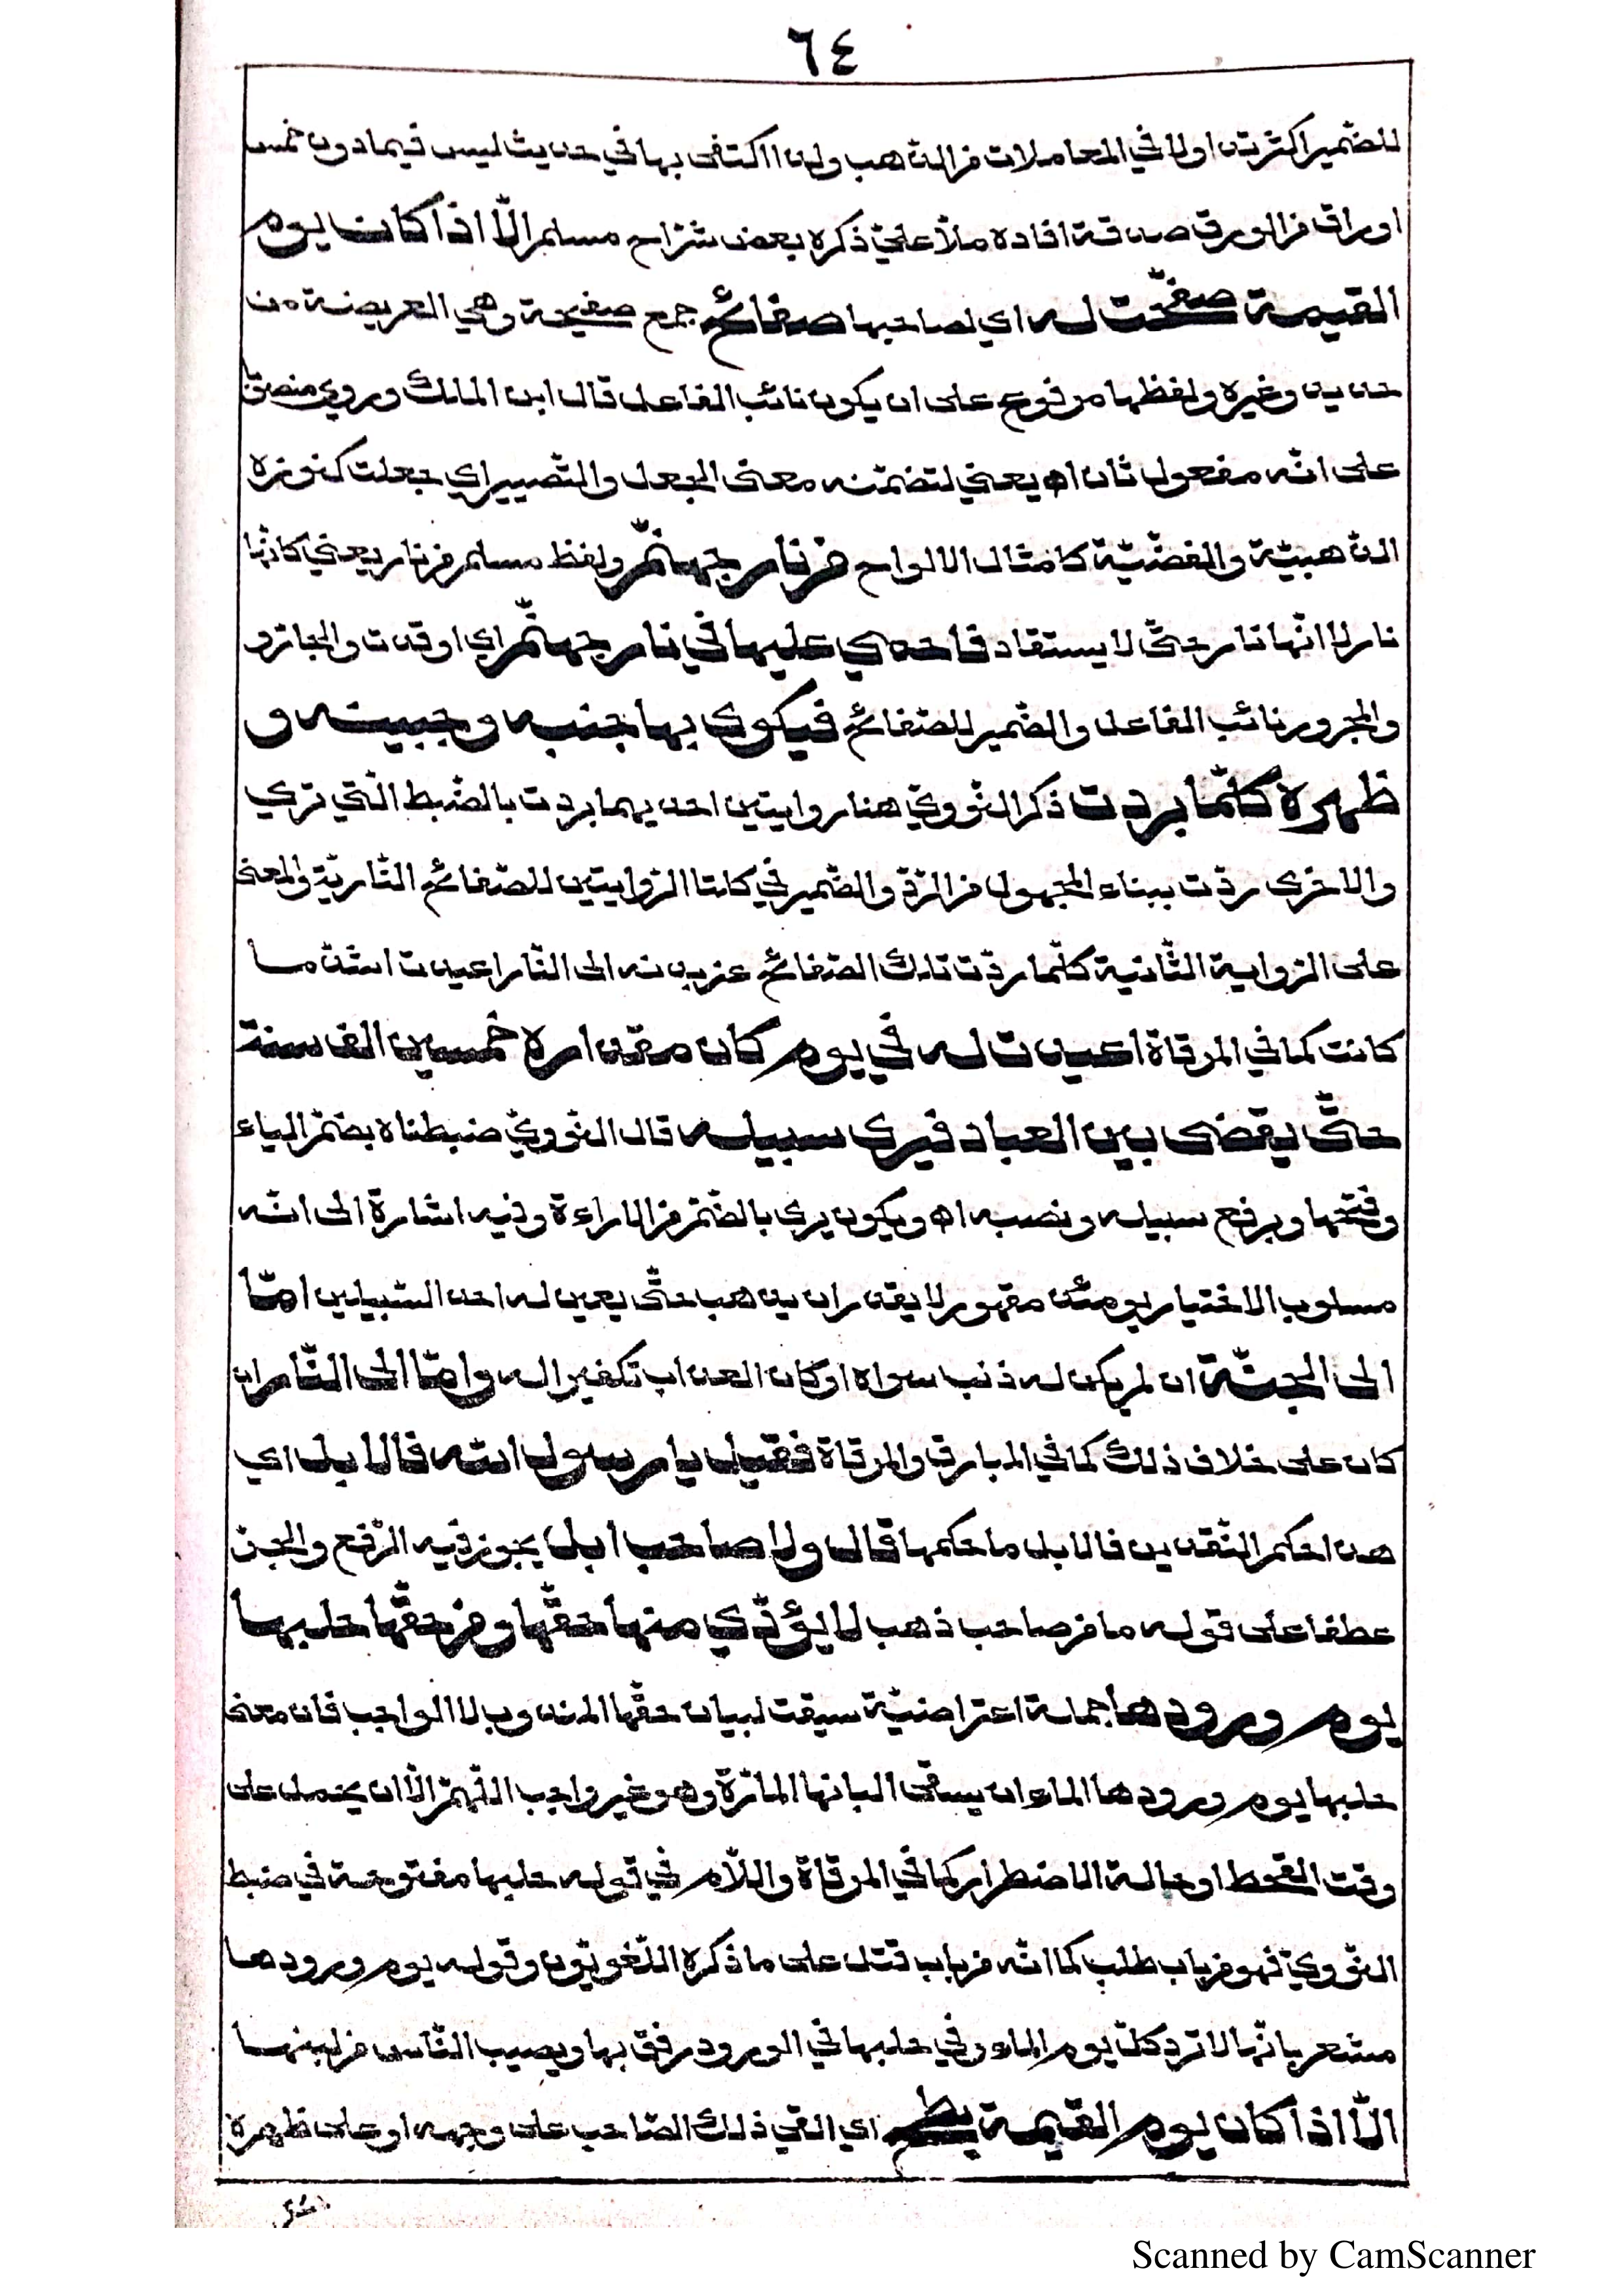 ٦٤
للضّمير اكثر تداولا في المعاملات من الذّهب ولذا اكتفى بها في حديث ليس فيما دون خمس
اوراق من الورق صدقة افاده ملّا عليّ ذكره بعض شرّاح مسلم الّا اذا كان يوم
القيمة صفّحت له اي لصاحبها صفائح جمع صفيحة وهي العريضة من
حديد وغيره ولفظها مرفوع على ان يكون نائب الفاعل قال ابن الملك وروي منصوبا
على انّه مفعول ثان اه يعني لتضمّنه معنى الجعل والتّصيير اي جعلت كنوزه
الذّهبيّة والفضّيّة كامثال الالواح من نار جهنّم ولفظ مسلم من نار يعني كانّها
نار لا انّها نار حتّى لا يستقاد فاحمي عليها في نار جهنّم اي اوقدت والجارّ و
والمجرور نائب الفاعل والضّمير للصّفائح فيكوى بها جنبه وجبينه و
ظهره كلّما بردت ذكر النّوويّ هنا روايتين احديهما بردت بالضّبط الّتي تري
والاخرى ردّت ببناء المجهول من الرّدّ والضّمير في كلتا الرّوايتين للصّفائح النّاريّة والمعنى
على الرّواية الثّانية كلّما ردّت تلك الصّفائح عن بدنه الى النّار اعيدت اشدّ ما
كانت كما في المرقاة اعيدت له في يوم كان مقداره خمسين الف سنة
حتّى يقضى بين العباد فيرى سبيله قال النّوويّ ضبطناه بضمّ الياء
وفتحها وبرفع سبيله ونصبه اه ويكون يرى بالضّمّ من الاراءة وفيه اشارة الى انّه
مسلوب الاختيار يومئذ مقهور لا يقدر ان يذهب حتّى يعيّن له احد السّبيلين امّا
الى الجنّة ان لم يكن له ذنب سواه او كان العذاب تكفيرا له وامّا الى النّار ان
كان على خلاف ذلك كما في المبارق والمرقاة فقيل يا رسول الله فالابل اي
هذا حكم النّقدين فالابل ما حكمها قال ولا صاحب ابل يجوز فيه الرّفع والجرّ
عطفا على قوله ما من صاحب ذهب لا يؤدّي منها حقّها ومن حقّها حلبها
يوم ورودها جملة اعتراضيّة سيقت لبيان حقّها المندوب لا الواجب فان معنى
حلبها يوم ورودها الماء ان يسقى البانها المارّة وهو غير واجب اللّهمّ الّا ان يحمل على
وقت القحط او حالة الاضطرار كما في المرقاة واللّام في قوله حلبها مفتوحة في ضبط
النّوويّ فهو من باب طلب كما انّه من باب قتل على ما ذكره اللّغويّون وقوله يوم ورودها
مشعر بانّها لا ترد كلّ يوم الماء وفي حلبها في الورود رفق بها ويصيب النّاس من لبنها
الّا اذا كان يوم القيمة بطح اي القي ذلك الصّاحب على وجهه او على ظهره
Scanned by CamScanner